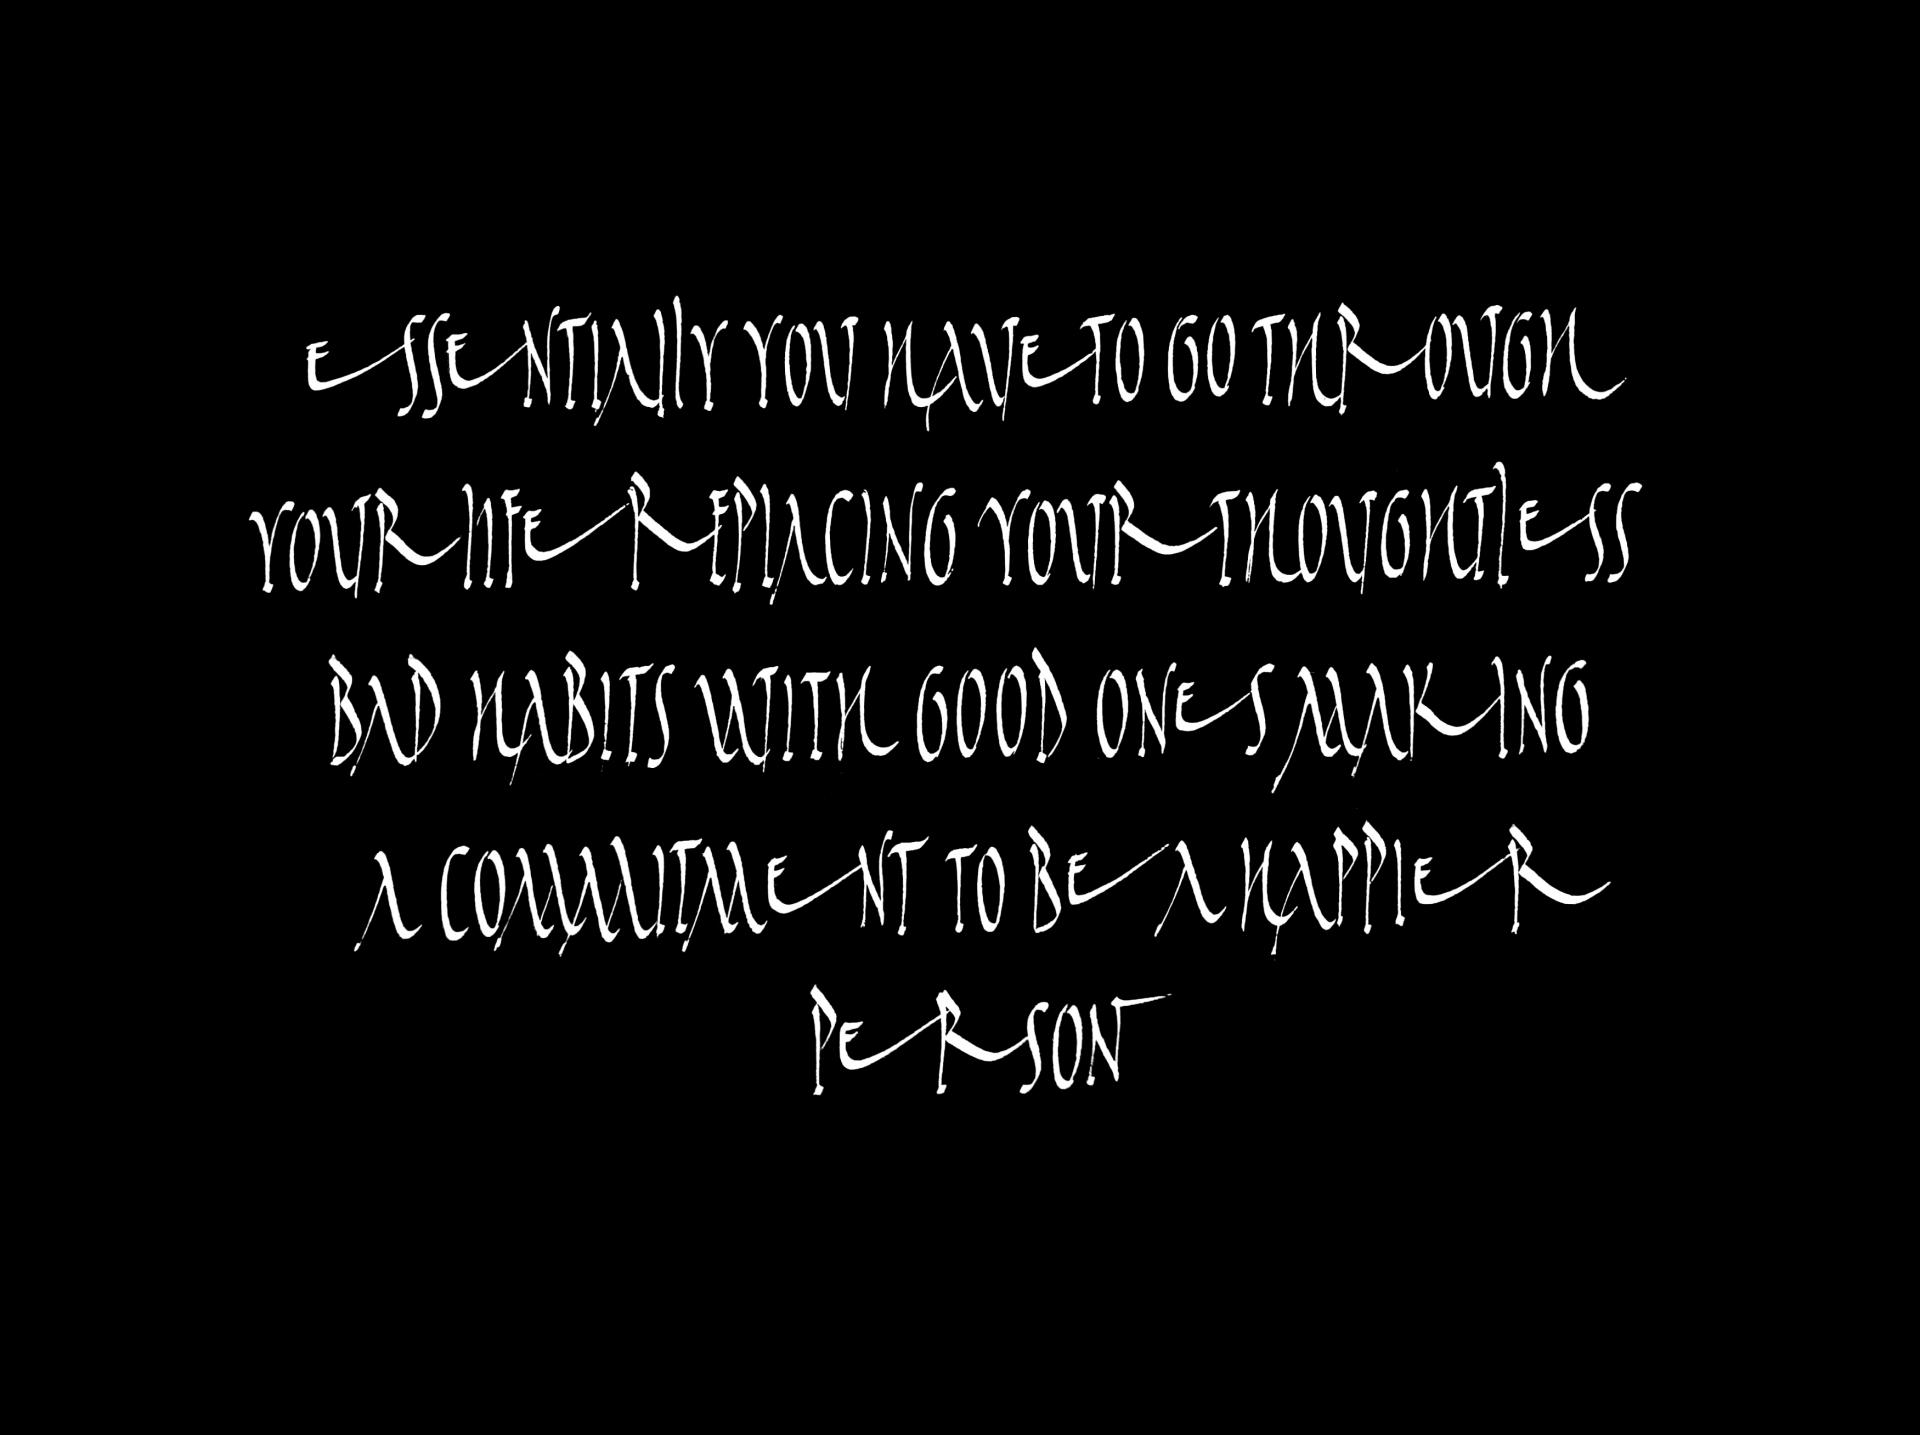 ESSENTIALLY YOU HAVE TO GO THROUGH
YOUR LIFE REPLACING YOUR THOUGHTLESS
BAD HABITS WITH GOOD ONES MAKING
A COMMITMENT TO BE A HAPPIER
PERSON